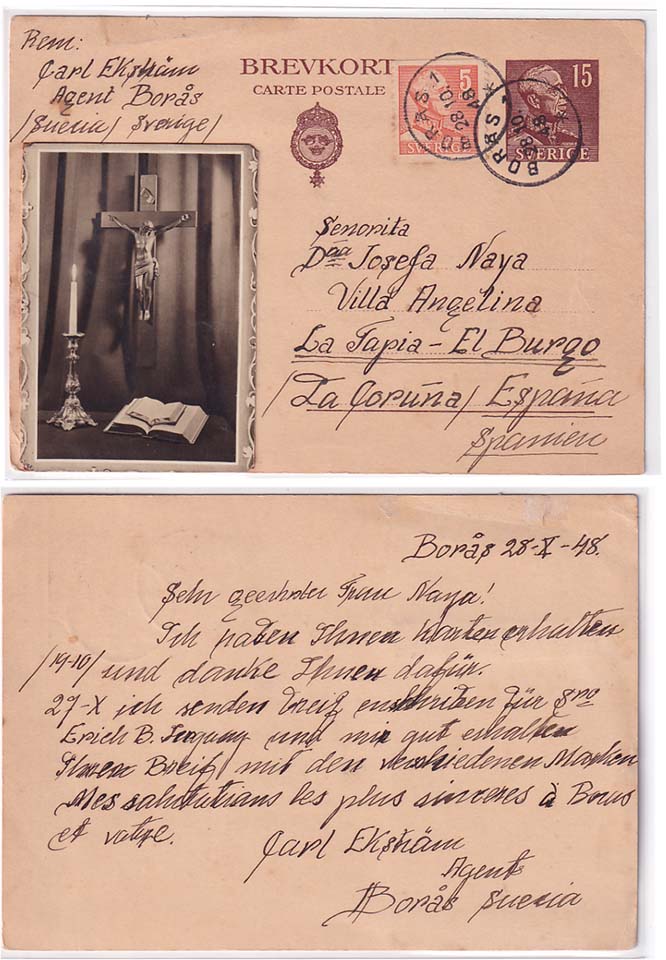 Rem:
Carl Ekström
Agent Borås
/Suecia/ Sverige/
BREVKORT
CARTE POSTALE
5
SVERIGE
BORÅS 1
28.10.
48
15
SVERIGE
BORÅS 1
28.10.
48
Señorita
Dªª Josefa Naya
Villa Angelina
La Tapia - El Burgo
/La Coruña/ España
Spanien
Borås 28-X-48.
Sehr geehrter Frau Naya!
Ich haben Ihnen Karten erhalten
/19-10/ und danke Ihnen dafür.
27-X ich senden Breif enshriben für Sra
Erich B. und mir gut erhalten
Ihnen Breif mit den verschiedenen Marken
Mes salututians les plus sinceres à Bous
et votre.
Carl Ekström
Agent
Borås Suecia